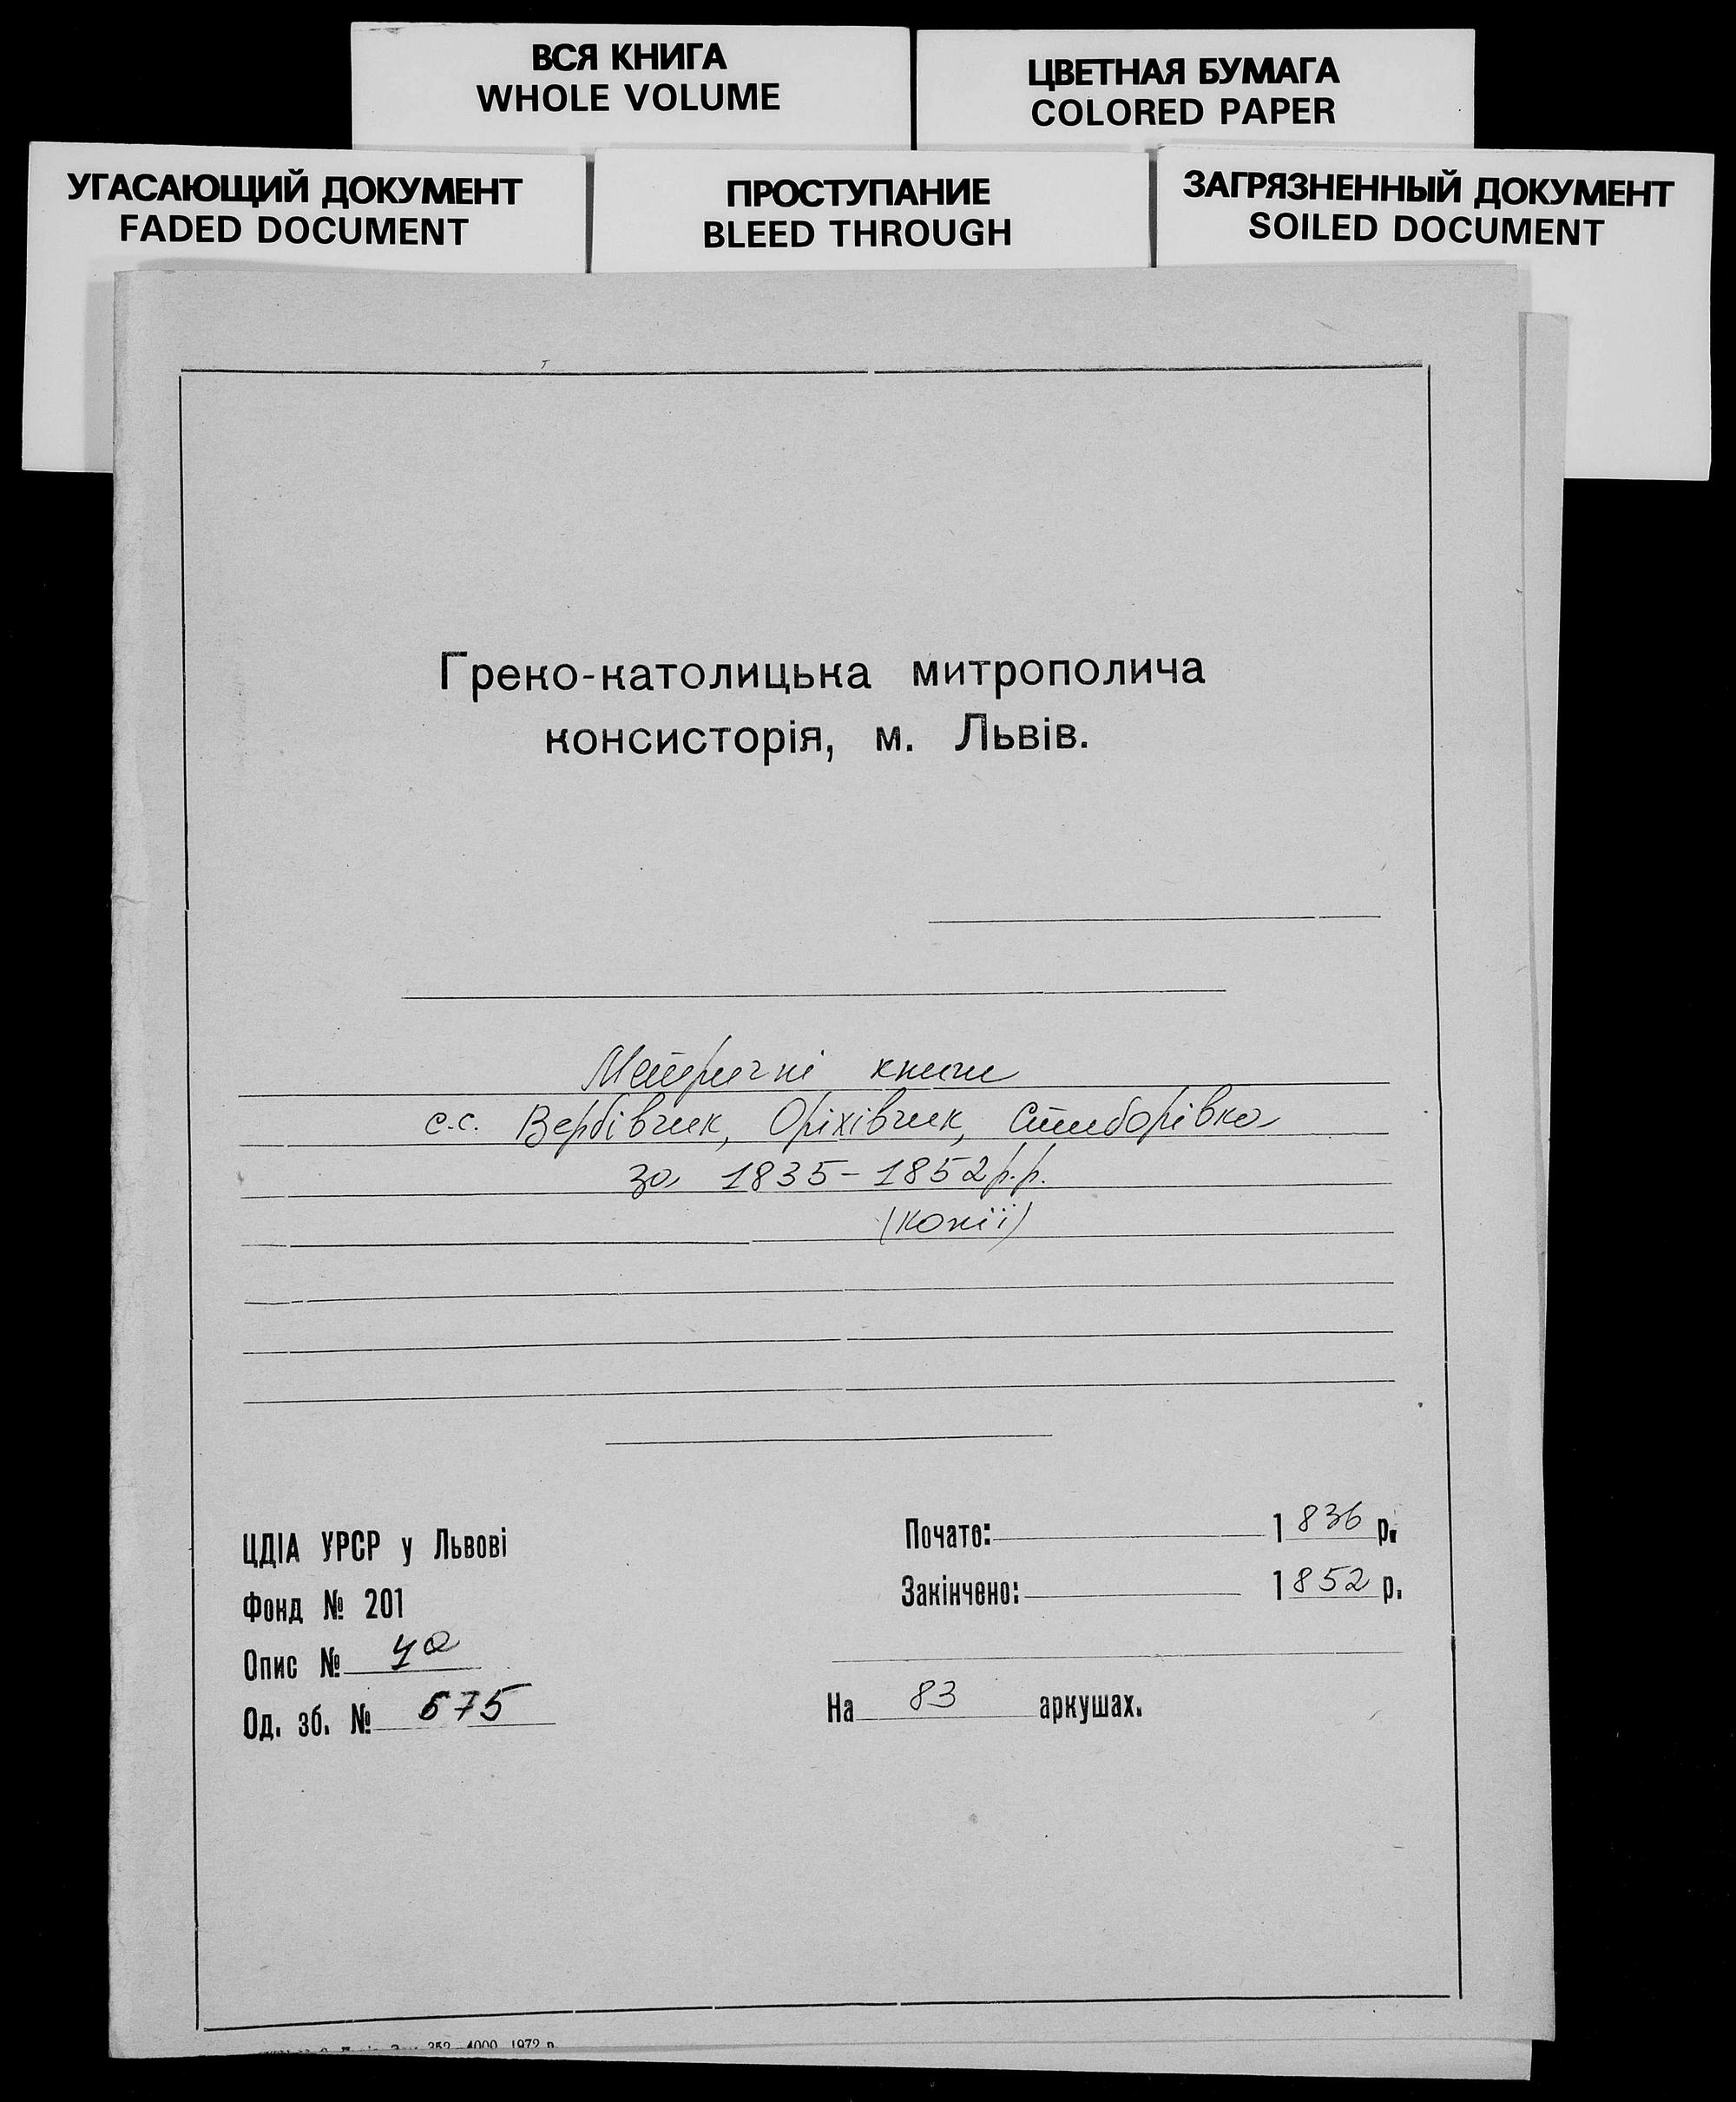 ВСЯ КНИГА
WHOLE VOLUME
ЦВЕТНАЯ БУМАГА
COLORED PAPER
УГАСАЮЩИЙ ДОКУМЕНТ
FADED DOCUMENT
ПРОСТУПАНИЕ
BLEED THROUGH
ЗАГРЯЗНЕННЫЙ ДОКУМЕНТ
SOILED DOCUMENT
Греко-католицька митрополича
консисторія, м. Львів.
Метричні книги
с.с. Вербівчик, Оріхівчик, Стиборівка
за 1835-1852 р.р.
(копії)
ЦДІА УРСР у Львові
Фонд № 201
Опис № 4а
Од. зб. № 575
Почато: 1836 р.
Закінчено: 1852 р.
На 83 аркушах.
352 4000 1972 р.